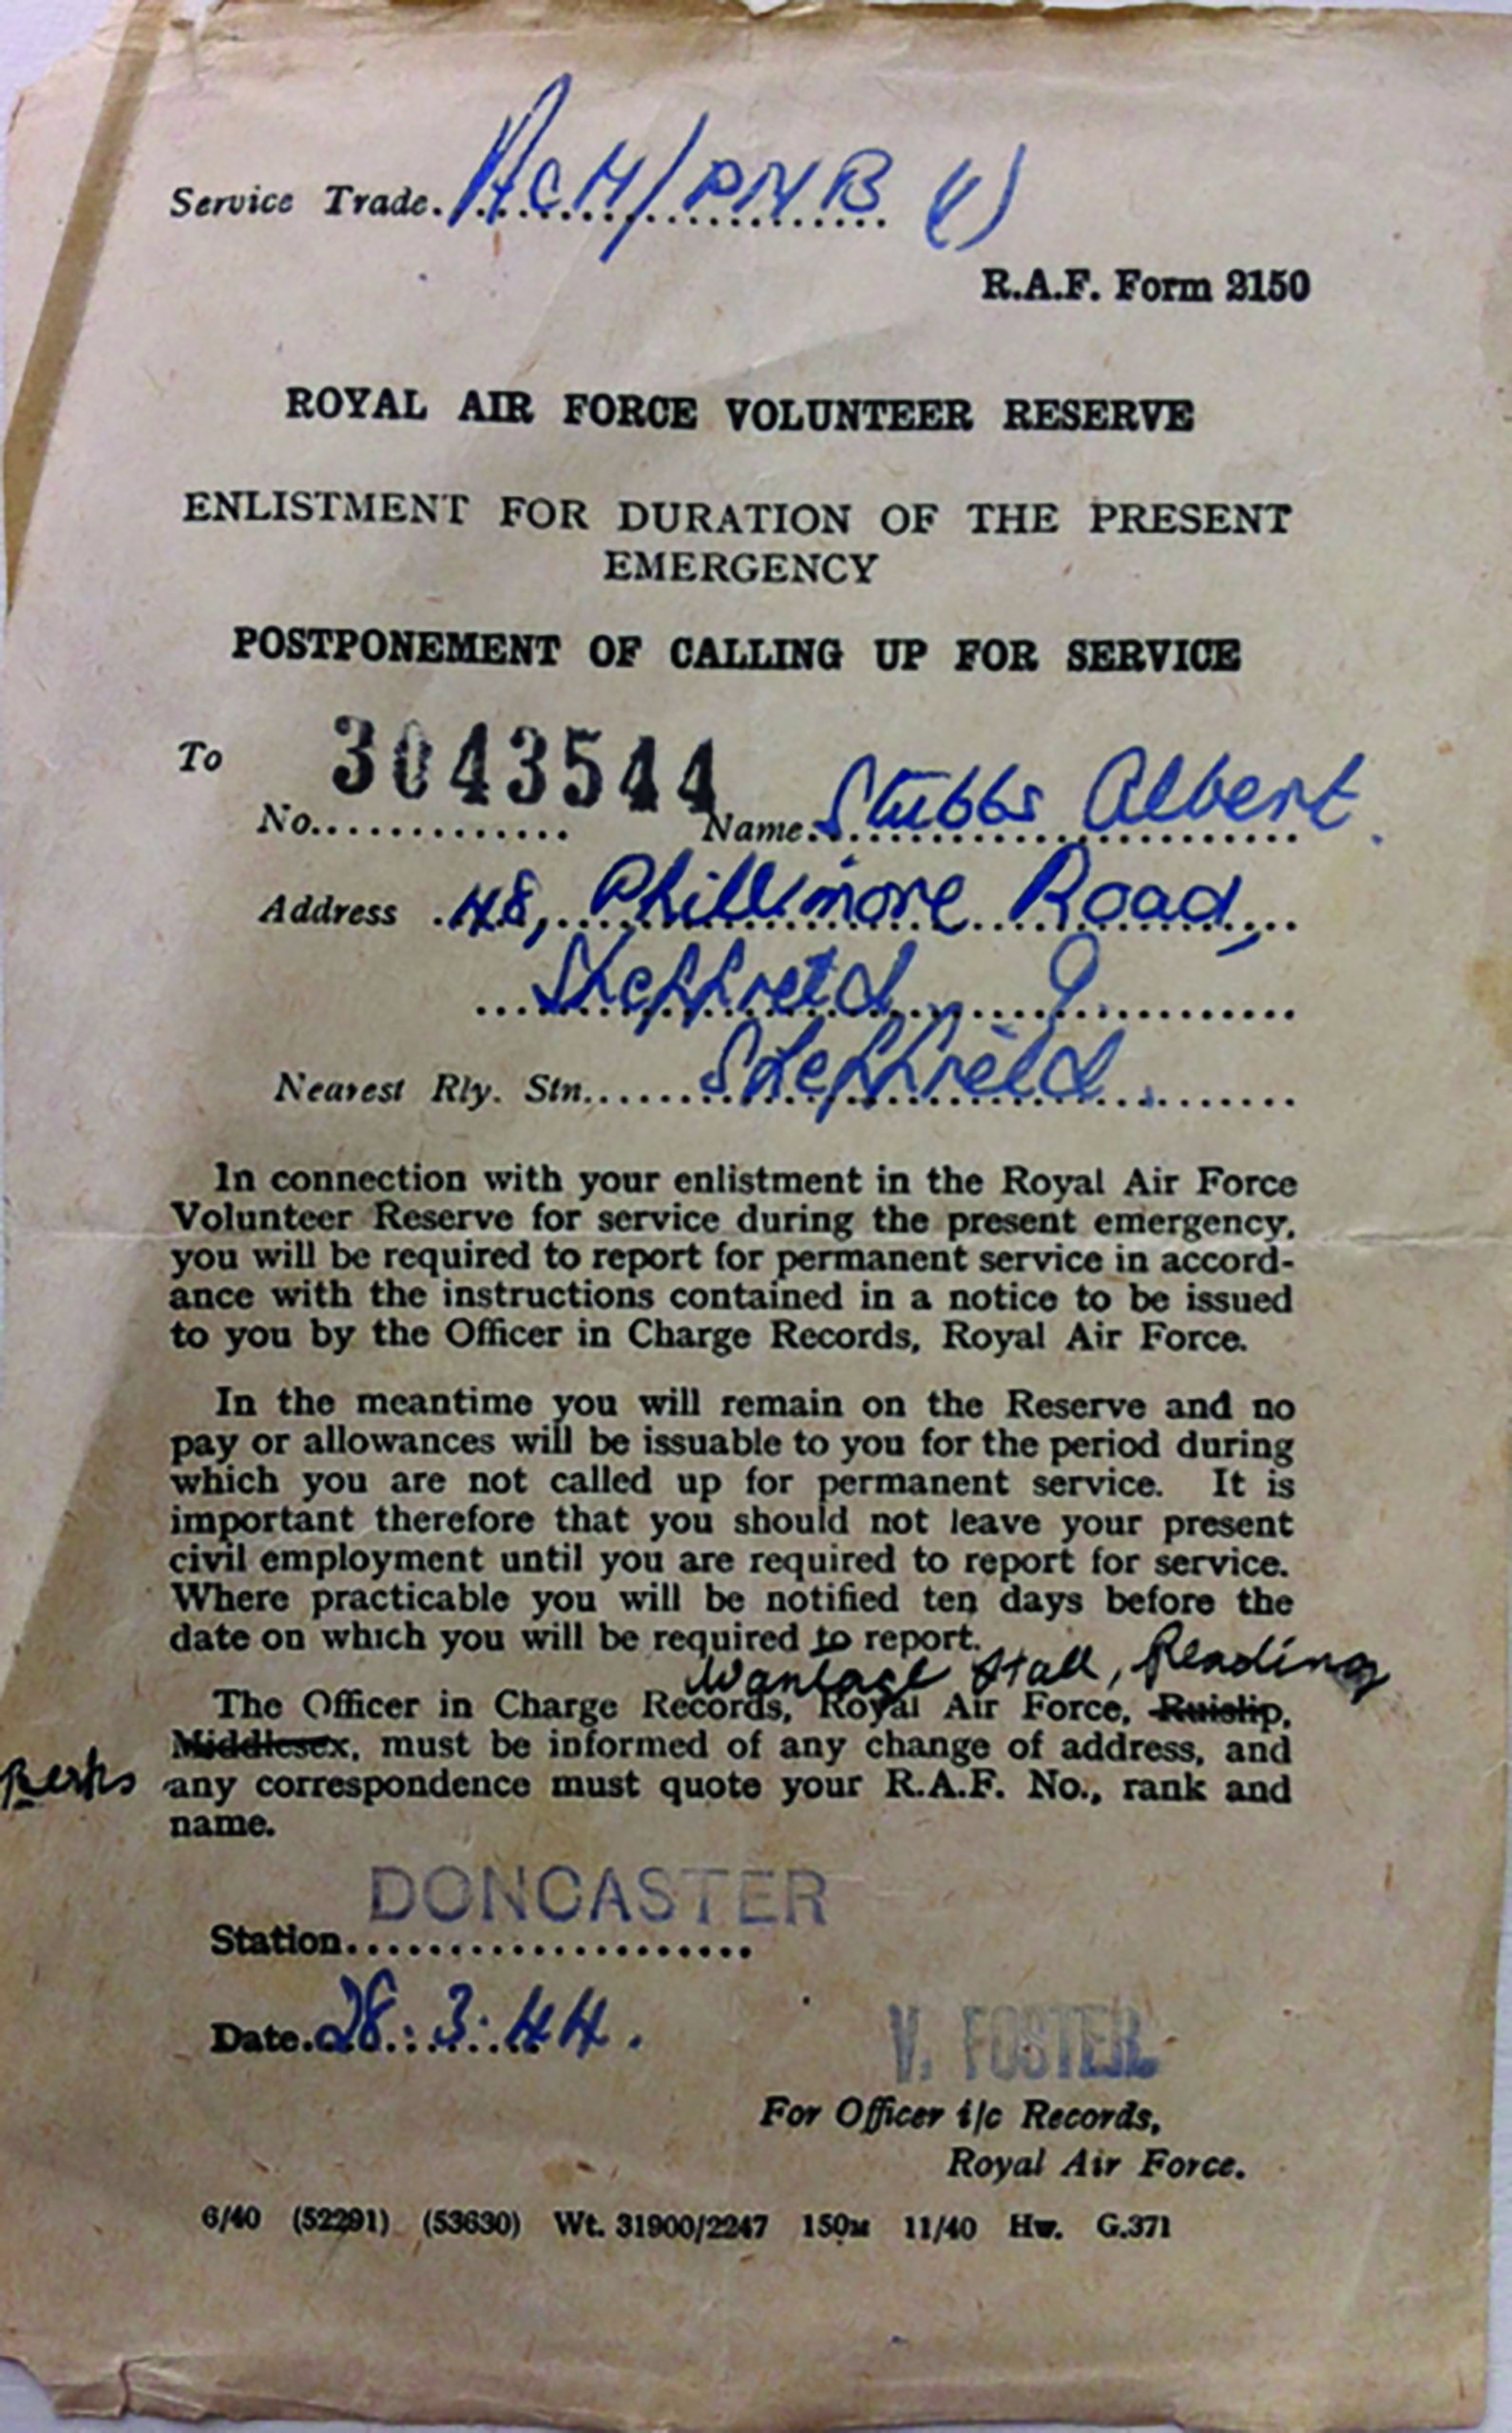 Service Trade. ACH/PNB (V)
R.A.F. Form 2150
ROYAL AIR FORCE VOLUNTEER RESERVE
ENLISTMENT FOR DURATION OF THE PRESENT
EMERGENCY
POSTPONEMENT OF CALLING UP FOR SERVICE
To
No. 3043544 Name. Stubbs Albert.
Address 48, Phillimore Road,
Sheffield 9.
Nearest Rly. Stn. Sheffield.
In connection with your enlistment in the Royal Air Force
Volunteer Reserve for service during the present emergency,
you will be required to report for permanent service in accord-
ance with the instructions contained in a notice to be issued
to you by the Officer in Charge Records, Royal Air Force.
In the meantime you will remain on the Reserve and no
pay or allowances will be issuable to you for the period during
which you are not called up for permanent service. It is
important therefore that you should not leave your present
civil employment until you are required to report for service.
Where practicable you will be notified ten days before the
date on which you will be required to report.
Wantage Hall, Reading
The Officer in Charge Records, Royal Air Force, Ruislip,
Middlesex, must be informed of any change of address, and
Berks any correspondence must quote your R.A.F. No., rank and
name.
DONCASTER
Station
Date. 28.3.44.
V. FOSTER
For Officer i/c Records,
Royal Air Force.
6/40 (52291) (53630) Wt. 31900/2247 150M 11/40 Hw. G.371